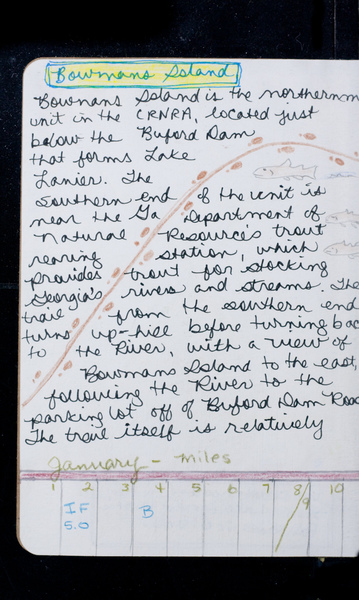 Bowmans Island
Bowmans Island is the northernm
unit in the CRNRA, located just
below the Buford Dam
that forms Lake
Lanier. The
southern end of the unit is
near the Ga Department of
Natural Resource's trout
rearing station, which
provides trout for stocking
Georgia's rivers and streams. The
trail from the southern end
turns up-hill before turning bac
to the River, with a view of
Bowmans Island to the east,
following the River to the
parking lot off of Buford Dam Road
The trail itself is relatively
January - Miles
1 2 3 4 5 6 7 8/9 10
IF B
5.0